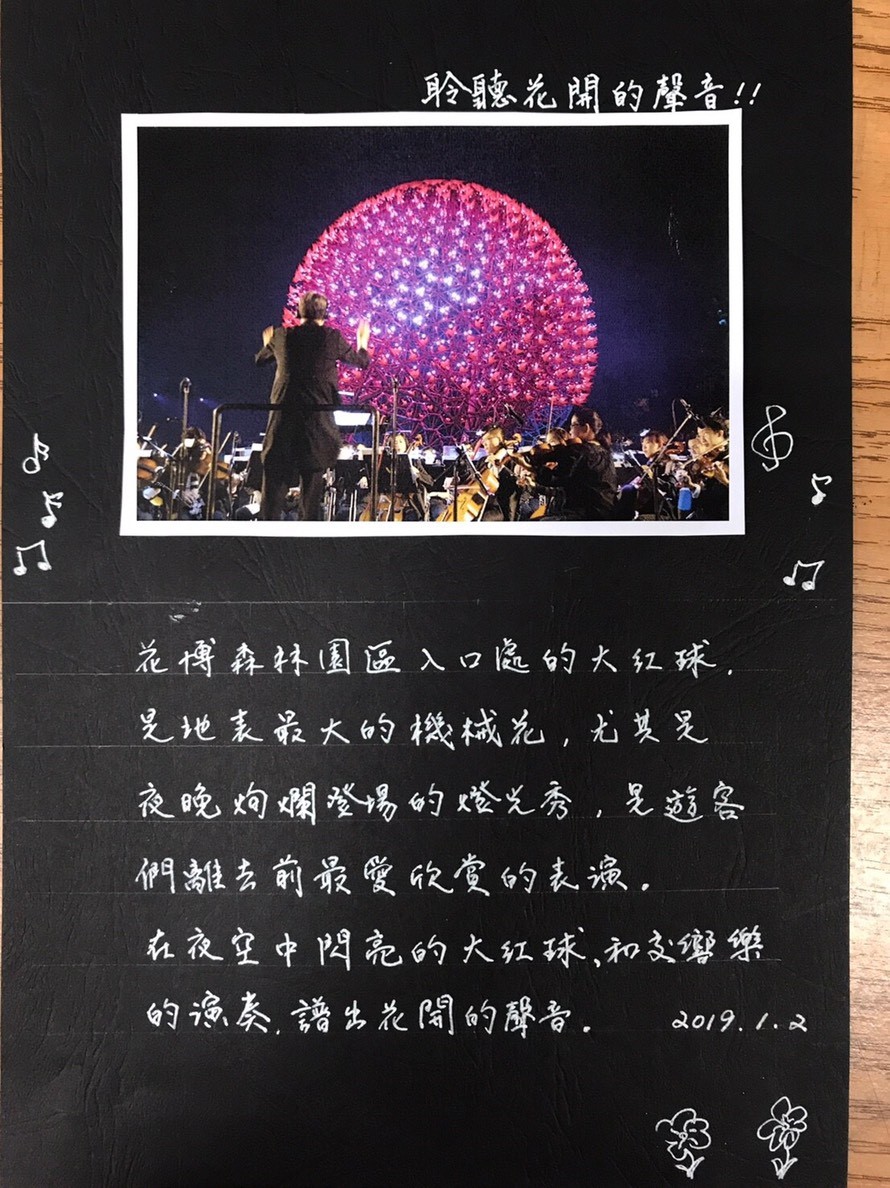 聆聽花開的聲音!!
花博森林園區入口處的大紅球,
是地表最大的機械花,尤其是
夜晚炯爛登場的燈光秀,是遊客
們離去前最愛欣賞的表演。
在夜空中閃亮的大紅球、和交響樂
的演奏,譜出花開的聲音。 2019.1.2